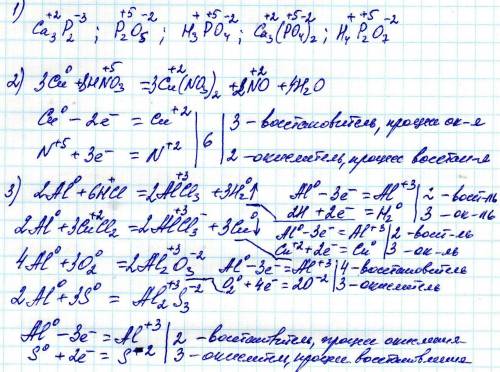 1) Ca₃⁺²P₂⁻³ ; P₂⁺⁵O₅⁻² ; H₃⁺P⁺⁵O₄⁻² ; Ca₃⁺²(P⁺⁵O₄⁻²)₂ ; H₄⁺P₂⁺⁵O₇⁻²
2) 3Cu⁰ + 8HN⁺⁵O₃ = 3Cu⁺²(NO₃)₂ + 2N⁺²O + 4H₂O
Cu⁰ - 2e⁻ = Cu⁺² | 6 | 3 - восстановитель, процесс ок-я
N⁺⁵ + 3e⁻ = N⁺² | 2 - окислитель, процесс восстан-я
3) 2Al⁰ + 6H⁺Cl = 2Al⁺³Cl₃ + 3H₂⁰↑
Al⁰ - 3e⁻ = Al⁺³ | 2 - вост-ль
2H + 2e⁻ = H₂⁰ | 3 - ок-ль
2Al⁰ + 3Cu⁺²Cl₂ = 2Al⁺³Cl₃⁻ + 3Cu⁰↓
Al⁰ - 3e⁻ = Al⁺³ | 2 - вост-ль
Cu⁺² + 2e⁻ = Cu⁰ | 3 - ок-ль
4Al⁰ + 3O₂⁰ = 2Al₂⁺³O₃⁻²
Al⁰ - 3e⁻ = Al⁺³ | 4 - восстановитель
O₂⁰ + 4e⁻ = 2O⁻² | 3 - окислитель
2Al⁰ + 3S⁰ = Al₂⁺³S₃⁻²
Al⁰ - 3e⁻ = Al⁺³ | 2 - восстановитель, процесс окисления
S⁰ + 2e⁻ = S⁻² | 3 - окислитель, процесс восстановления